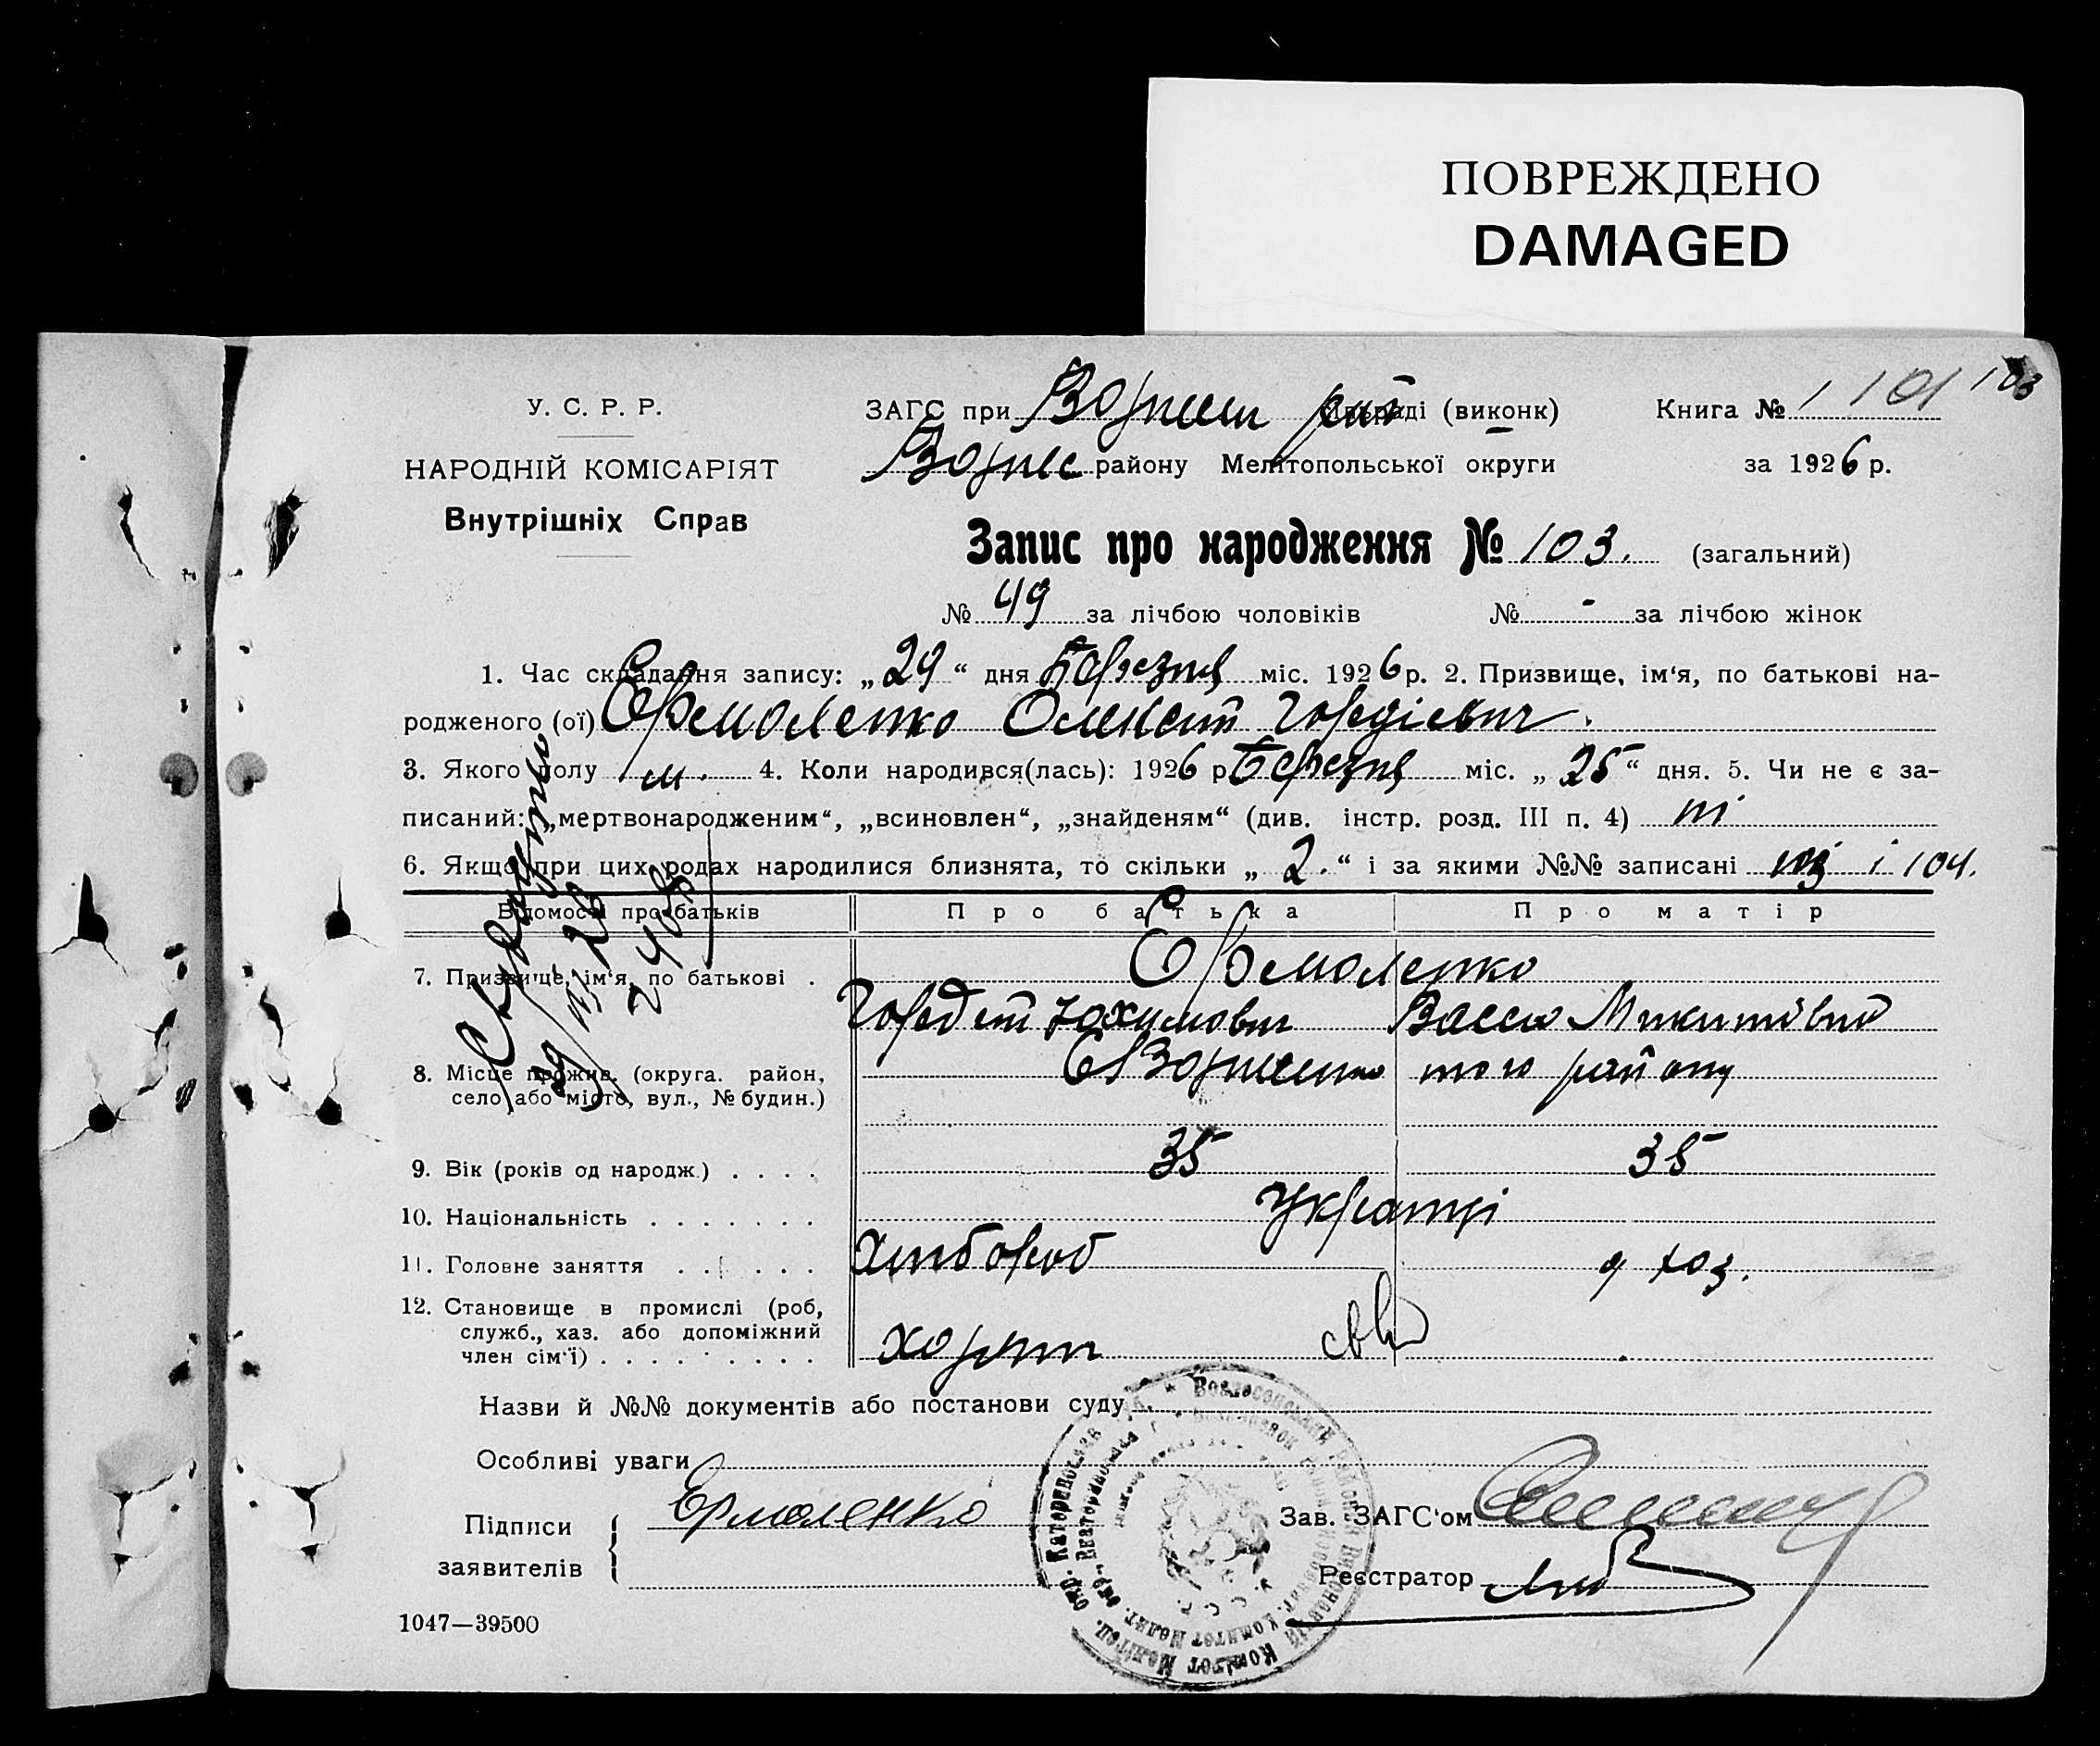 ПОВРЕЖДЕНО
DAMAGED
103
У. С. Р. Р.
НАРОДНІЙ КОМІСАРІЯТ
Внутрішніх Справ
ЗАГС при (виконк)
Книга № 1 101
району Мелітопольської округи
за 1926 р.
Запис про народження № 103. (загальний)
№ 49 за лічбою чоловіків № - за лічбою жінок
1. Час складання запису: „29“ дня Березня міс. 1926 р. 2. Призвище, ім'я, по батькові на-
родженого (ої) Ермоленко Гордієвич.
3. Якого полу м. 4. Коли народився(лась): 1926 р. Березня міс. „25“ дня. 5. Чи не є за-
писаний: „мертвонародженим“, „всиновлен“, „знайденям“ (див. інстр. розд. III п. 4) ні
6. Якщо при цих родах народилися близнята, то скільки „2.“ і за якими №№ записані 103 і 104.
Відомості про батьків Про батька Про матір
7. Призвище, ім'я, по батькові . Ермоленко
Гордій Юхимович Васса Микитівна
8. Місце прожив. (округа. район, того району
село або місто, вул., № будин.)
9. Вік (років од народж.) . . . . 35 35
10. Національність . . . . . . . Українці
11. Головне заняття . . . . . . Хлібороб д хоз.
12. Становище в промислі (роб,
служб., хаз. або допоміжний
член сім'ї) . . . . . . . . .
Назви й №№ документів або постанови суду
Особливі уваги
Підписи
заявителів
Ермоленко
Зав. ЗАГС'ом
Реєстратор
1047—39500